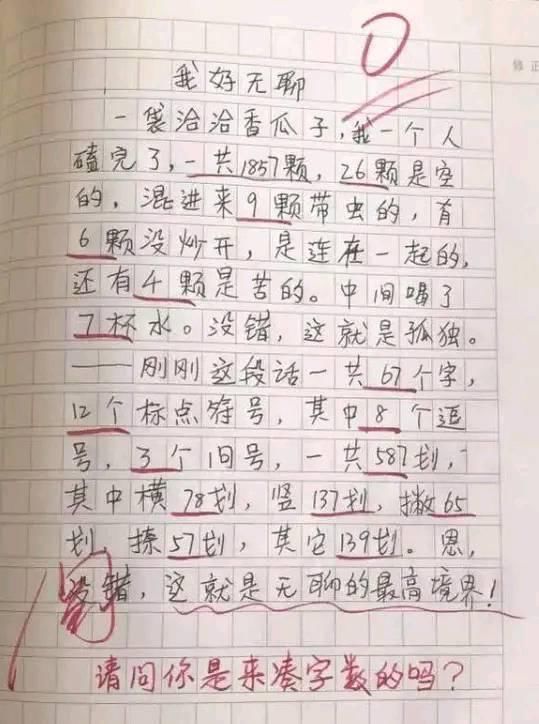 0
修正
我好无聊
一袋洽洽香瓜子,我一个人
磕完了,一共1857颗,26颗是空
的,混进来9颗带虫的,有
6颗没炒开,是连在一起的,
还有4颗是苦的。中间喝了
7杯水。没错,这就是孤独。
——刚刚这段话一共67个字,
12个标点符号,其中8个逗
号,3个旧号,一共587划,
其中横78划,竖137划,撇65
划 捺57划,其它139划。恩,
没错,这就是无聊的最高境界!
阅
请问你是来凑字数的吗?